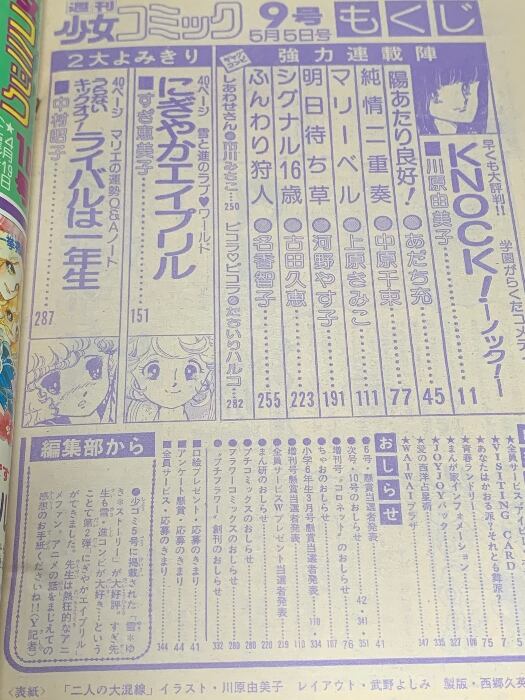 週刊
少女コミック
9号
5月5日号
もくじ
早くも大評判!!
学園がらくたコメディ
KNOCK!―ノック!―
■川原由美子 11
強力連載陣
陽あたり良好!●あだち充 45
純情二重奏●中原千束 77
マリーベル●上原きみこ 111
明日待ち草●河野やす子 191
シグナル16歳●古田久恵 223
ふんわり狩人●名香智子 255
しあわせさん●市川みさこ 250
ピコラ♡ピコラ●たちいりハルコ 282
2大よみきり
40ページ 雪と進のラブ♥ワールド
にぎやかエイプリル
■すぎ恵美子 151
40ページ マリエの運勢Q&Aノート
うらない
キックオフ!
ライバルは一年生
■中村昭子 287
★VISITING CARD 5
★あなたはかおる派?それとも舞派? 75
★青春ランドリー
★まんが家インフォメーション
★JOYJOYパック 335
★愛の西洋占星術
★WAIWAIプラザ 347
おしらせ
●6号・懸賞当選者発表 41
●次号・10号のおしらせ 351
●増刊号「コロネット」のおしらせ 76
●ちゃおのおしらせ
●小学6年生3月号懸賞当選者発表
●増刊号懸賞当選者発表 110
●全員サービスWプレゼント当選者発表
●まん研のおしらせ
●プチコミックスのおしらせ
●フラワーコミックスのおしらせ
●「プチフラワー」創刊のおしらせ 332
■口絵プレゼント・応募のきまり 41
■アンケート懸賞・応募のきまり 44
■全員サービス・応募のきまり 344
編集部から
●少コミ5号に掲載された「雪*ゆ
き*ストーリー」が大好評。すぎ先
生も「雪・進コンビが大好き!」という
ことで第2弾「にぎやかエイプリル」
ができました。先生は熱狂的なアニ
メファン。アニメの話をまじえての
感想のお手紙くださいね!!(Y記者)
〈表紙〉「二人の大混線」イラスト・川原由美子 レイアウト・武野よしみ 製版・西郷久英